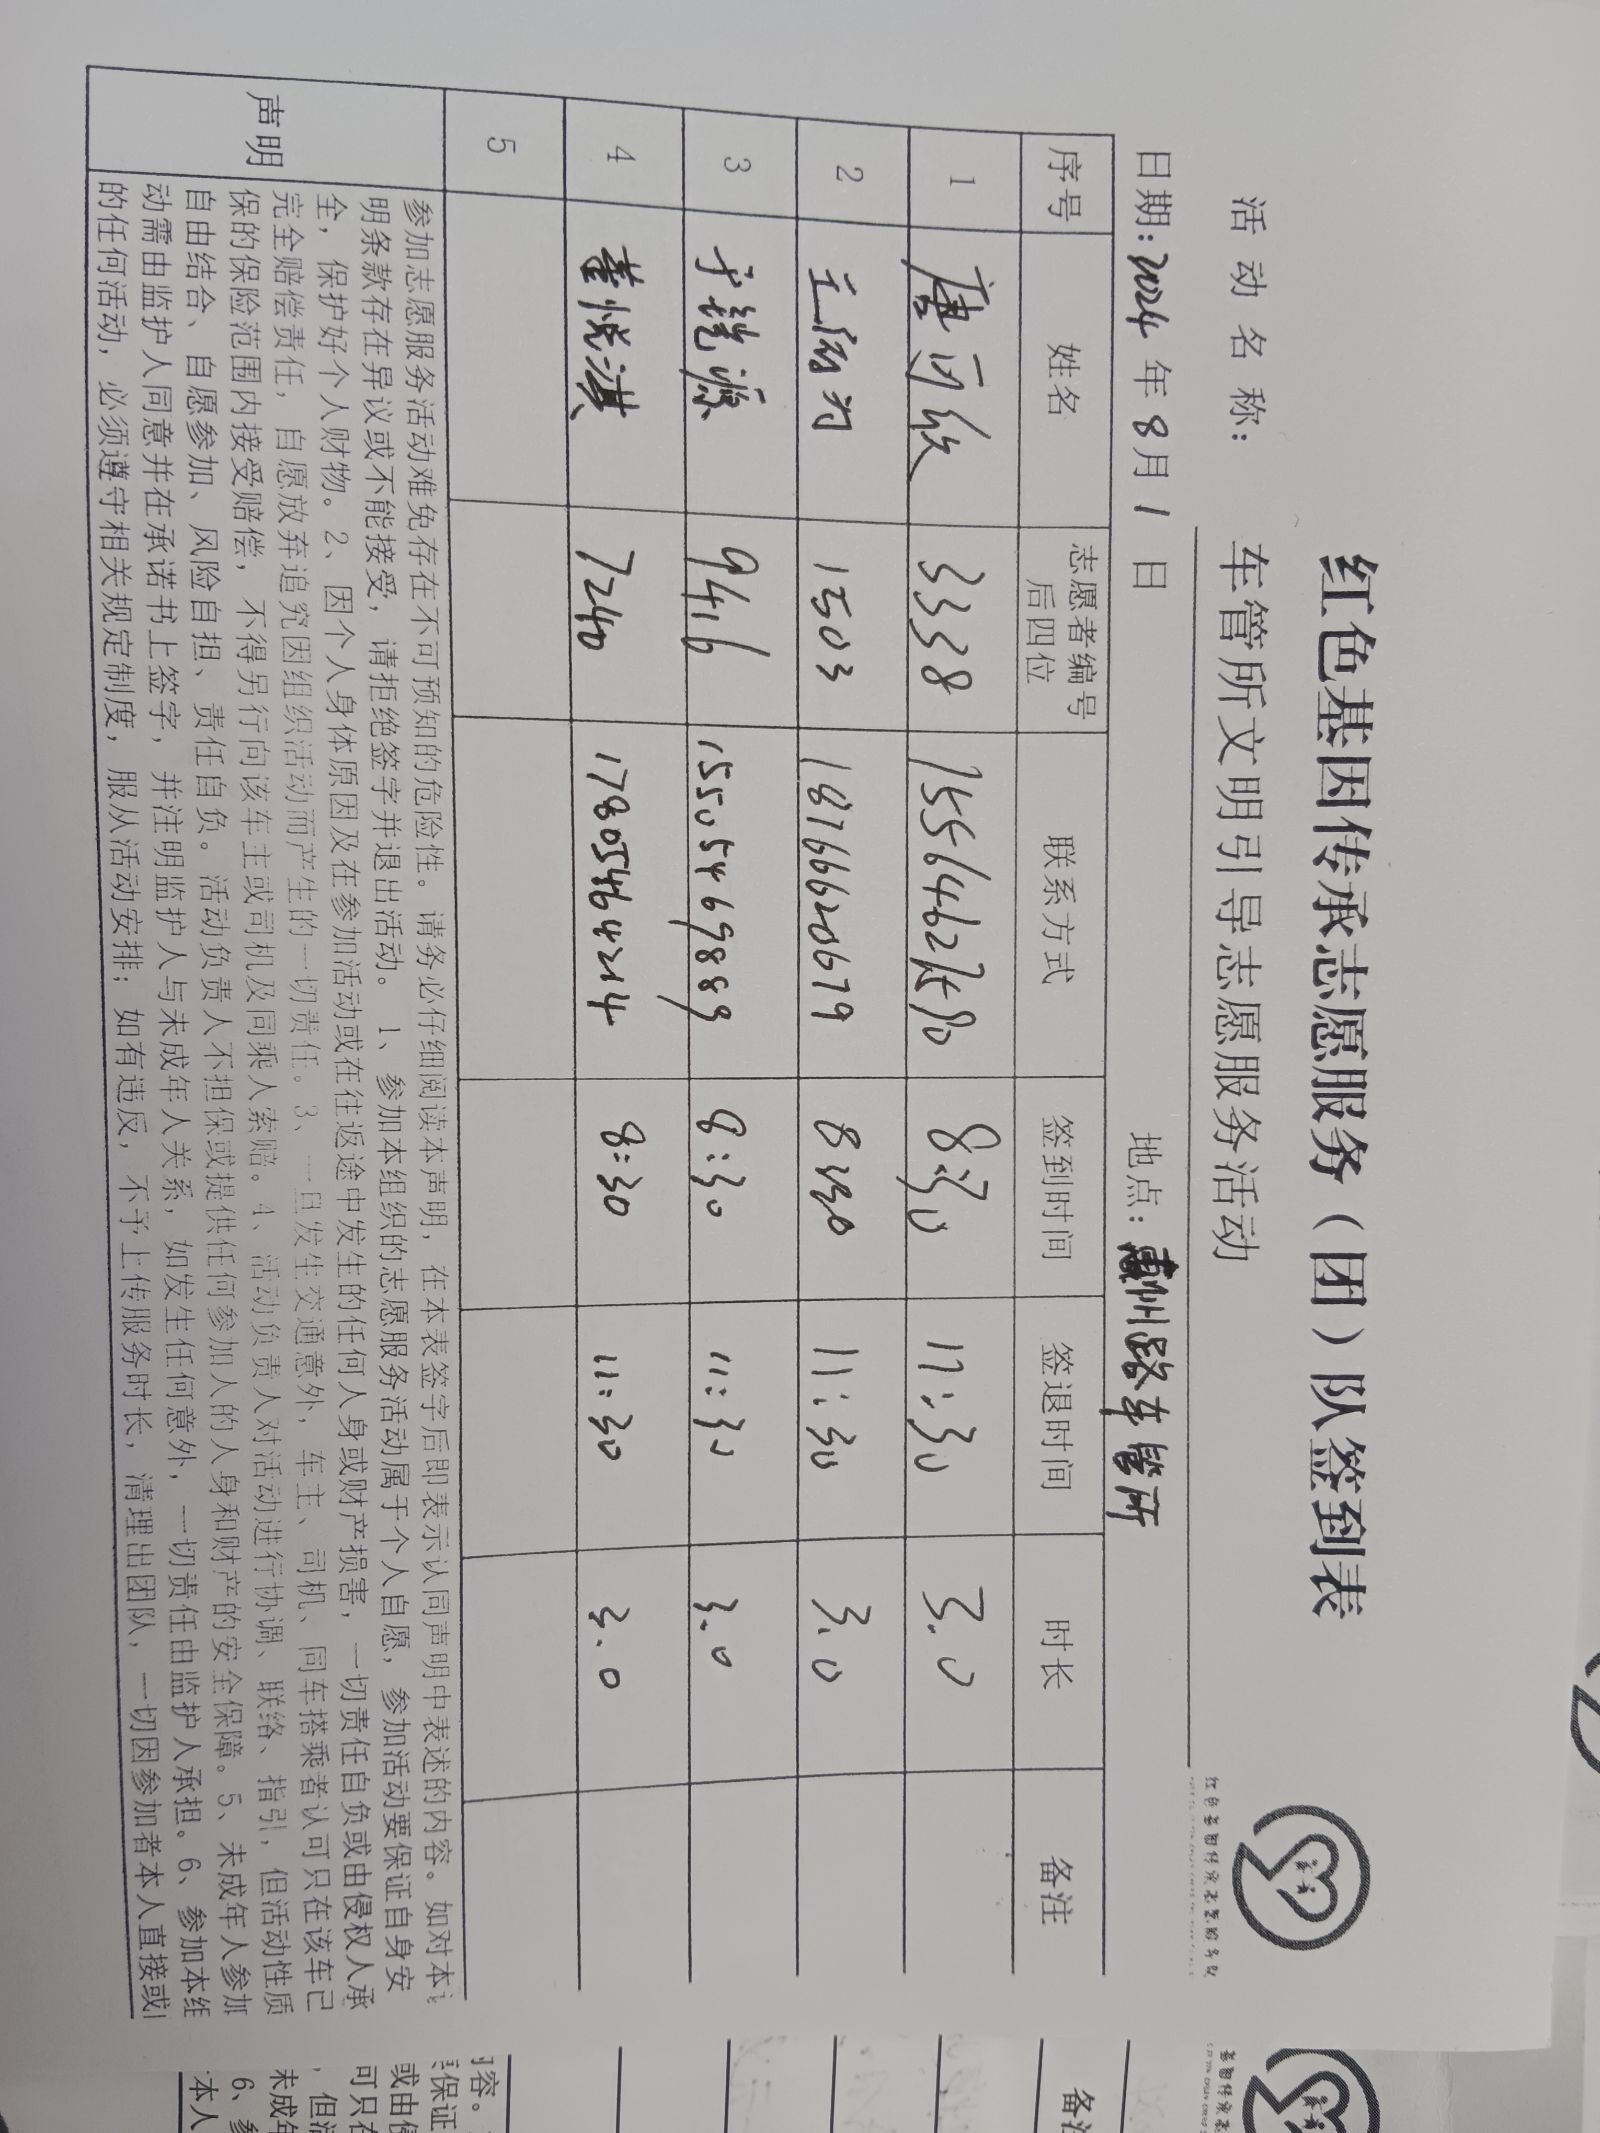 红色基因传承志愿服务（团）队签到表
活动名称： 车管所文明引导志愿服务活动
日期：2024年8月1日 地点：惠州路车管所
序号 姓名 志愿者编号后四位 联系方式 签到时间 签退时间 时长 备注
1 唐 3338 8:30 11:30 3.0
2 王 1503 18766620679 8:30 11:30 3.0
3 9416 15505469889 8:30 11:30 3.0
4 董悦淇 7240 17805464214 8:30 11:30 3.0
5
声明
参加志愿服务活动难免存在不可预知的危险性。请务必仔细阅读本声明，在本表签字后即表示认同声明中表述的内容。如对本
明条款存在异议或不能接受，请拒绝签字并退出活动。 1、参加本组织的志愿服务活动属于个人自愿，参加活动要保证自身安
全，保护好个人财物。2、因个人身体原因及在参加活动或在往返途中发生的任何人身或财产损害，一切责任自负或由侵权人承
完全赔偿责任，自愿放弃追究因组织活动而产生的一切责任。3、一旦发生交通意外，车主、司机、同车搭乘者认可只在该车已
保的保险范围内接受赔偿，不得另行向该车主或司机及同乘人索赔。4、活动负责人对活动进行协调、联络、指引，但活动性质
自由结合、自愿参加、风险自担、责任自负。活动负责人不担保或提供任何参加人的人身和财产的安全保障。5、未成年人参加
动需由监护人同意并在承诺书上签字，并注明监护人与未成年人关系，如发生任何意外，一切责任由监护人承担。6、参加本组
的任何活动，必须遵守相关规定制度，服从活动安排；如有违反，不予上传服务时长，清理出团队，一切因参加者本人直接或
红色基因传承志愿服务队
备注
容。
保证
或由侵
可只在
，但活
未成年
6、参
本人